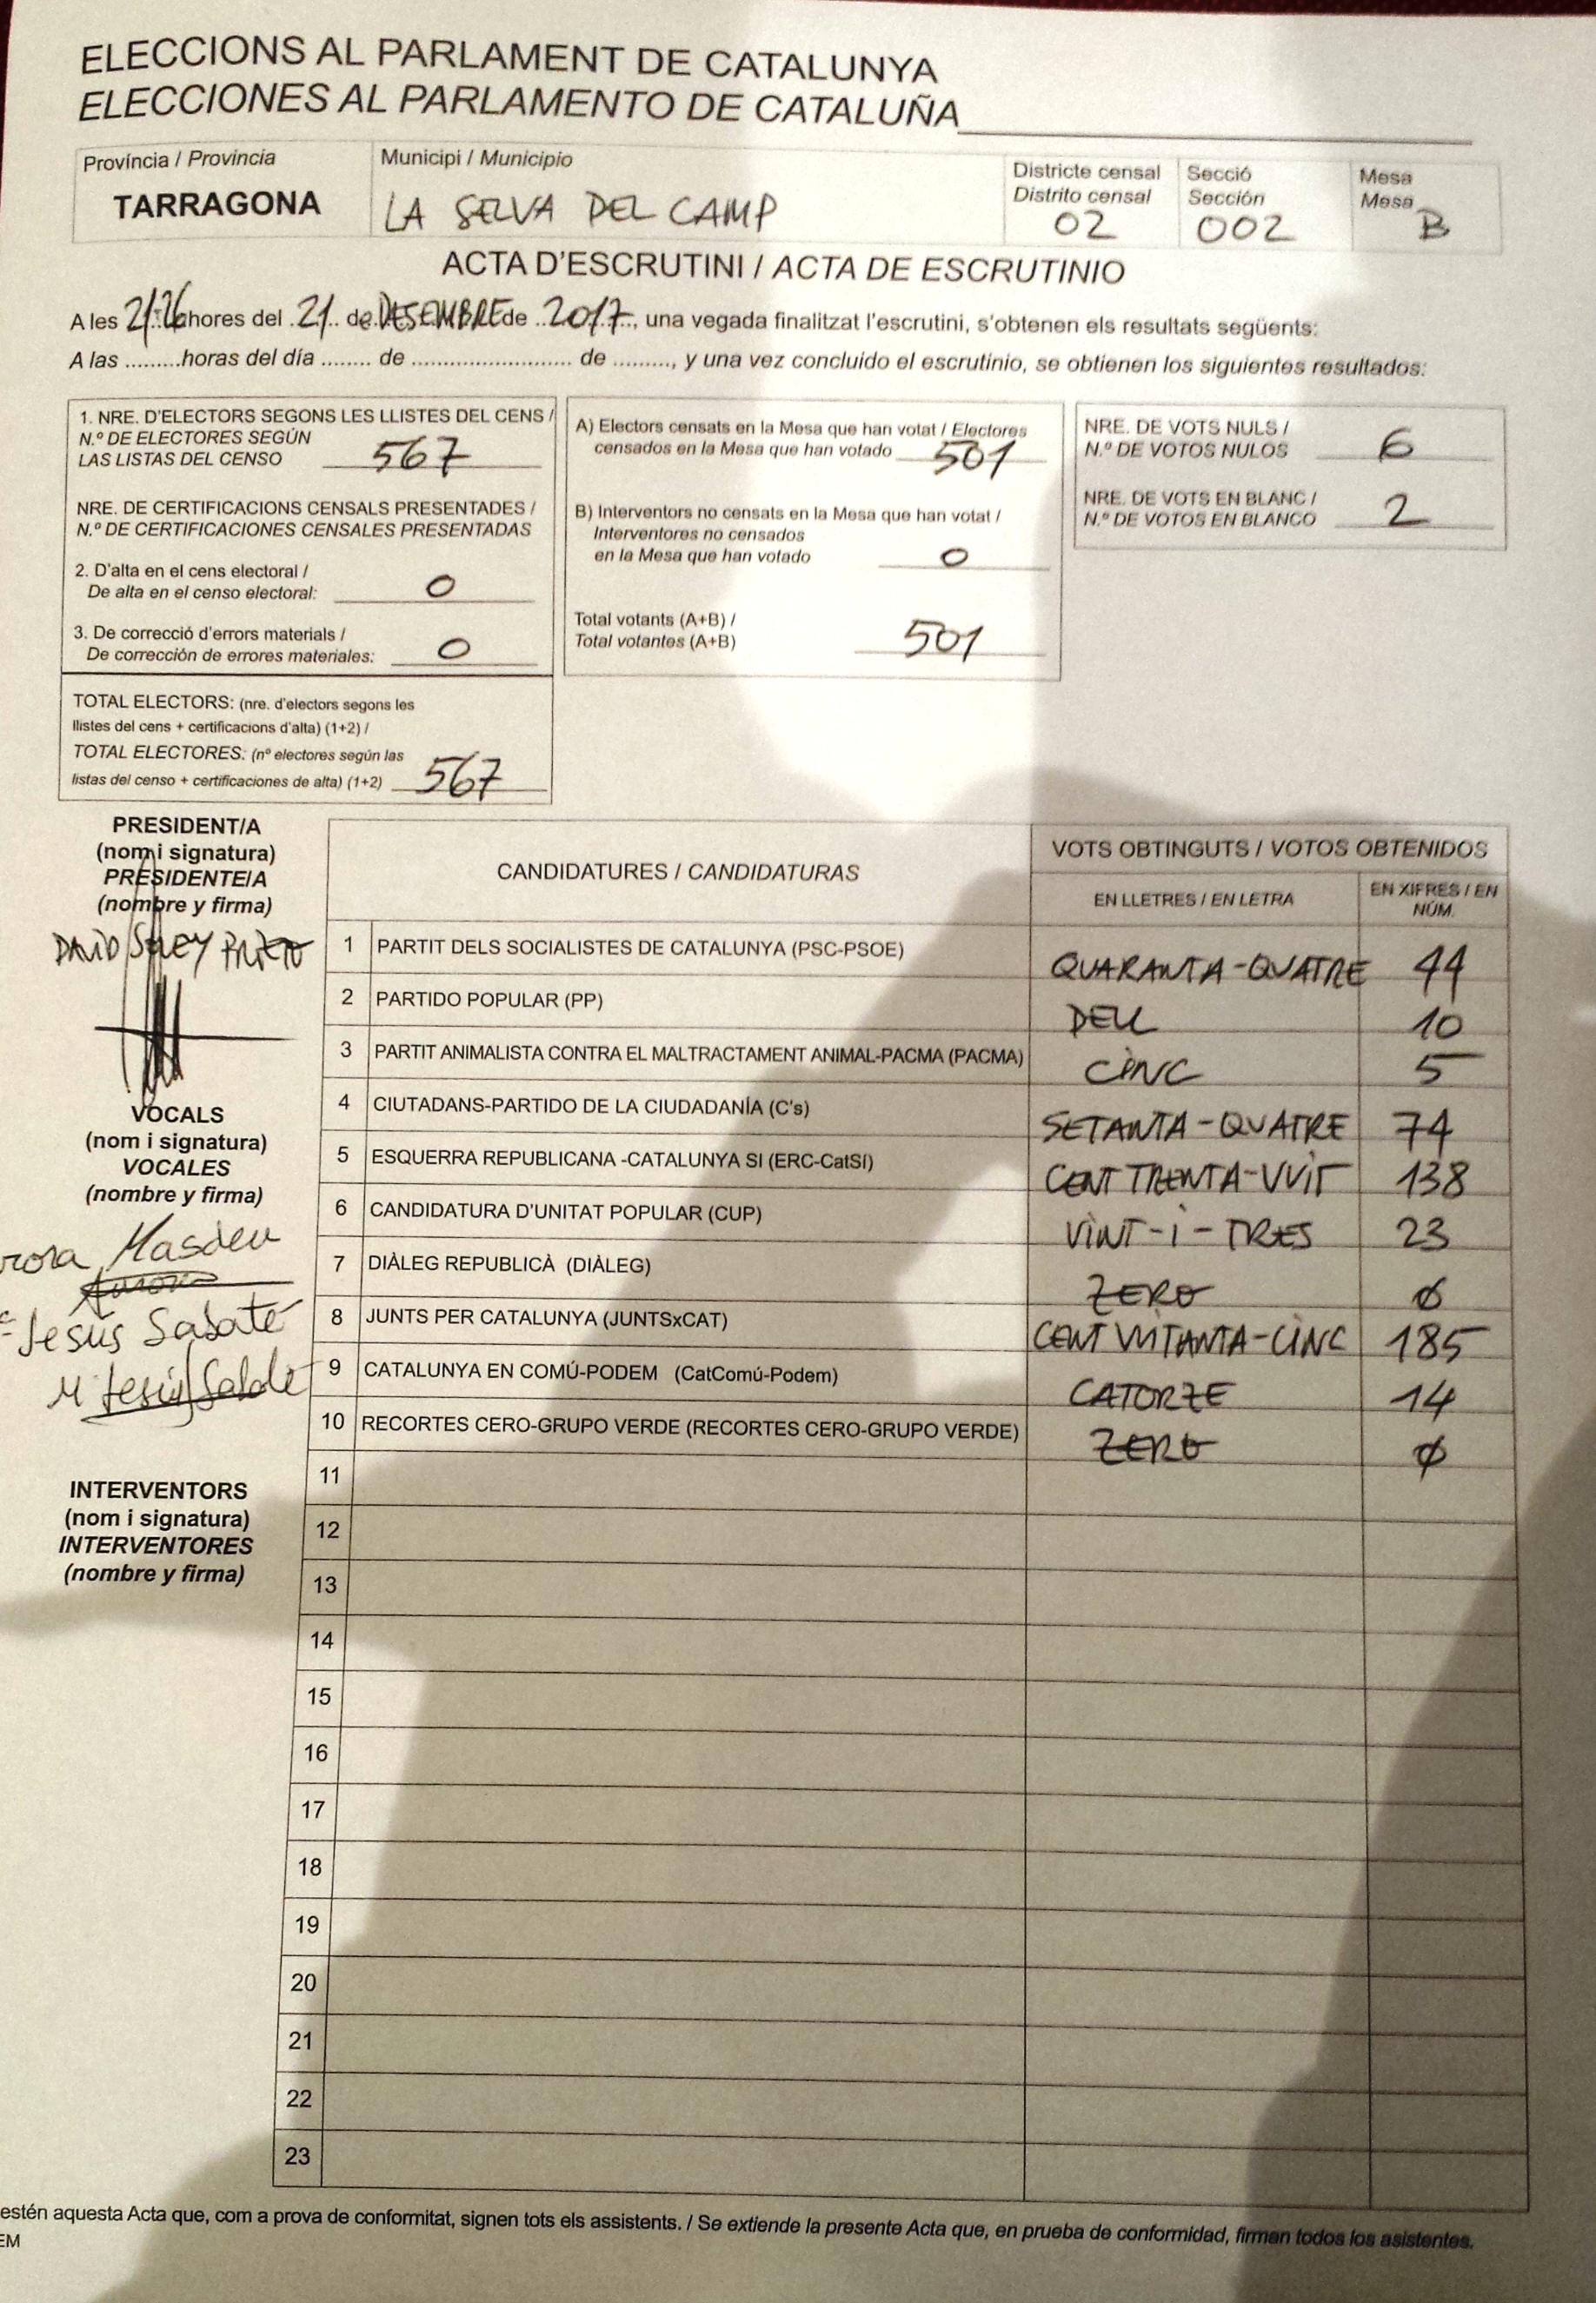 ELECCIONS AL PARLAMENT DE CATALUNYA
ELECCIONES AL PARLAMENTO DE CATALUÑA
Província / Provincia
TARRAGONA
Municipi / Municipio
LA SELVA DEL CAMP
Districte censal
Distrito censal
02
Secció
Sección
002
Mesa
Mesa
B
ACTA D'ESCRUTINI / ACTA DE ESCRUTINIO
A les hores del 21 de DESEMBRE de 2017, una vegada finalitzat l'escrutini, s'obtenen els resultats següents:
A las ......... horas del día ........ de ........................ de .........., y una vez concluido el escrutinio, se obtienen los siguientes resultados:
1. NRE. D'ELECTORS SEGONS LES LLISTES DEL CENS /
N.º DE ELECTORES SEGÚN
LAS LISTAS DEL CENSO 567
NRE. DE CERTIFICACIONS CENSALS PRESENTADES /
N.º DE CERTIFICACIONES CENSALES PRESENTADAS
2. D'alta en el cens electoral /
De alta en el censo electoral: 0
3. De correcció d'errors materials /
De corrección de errores materiales: 0
TOTAL ELECTORS: (nre. d'electors segons les
llistes del cens + certificacions d'alta) (1+2) /
TOTAL ELECTORES: (nº electores según las
listas del censo + certificaciones de alta) (1+2) 567
A) Electors censats en la Mesa que han votat / Electores
censados en la Mesa que han votado 501
B) Interventors no censats en la Mesa que han votat /
Interventores no censados
en la Mesa que han votado 0
Total votants (A+B) /
Total votantes (A+B) 501
NRE. DE VOTS NULS /
N.º DE VOTOS NULOS 6
NRE. DE VOTS EN BLANC /
N.º DE VOTOS EN BLANCO 2
PRESIDENT/A
(nom i signatura)
PRESIDENTE/A
(nombre y firma)
DAVID
VOCALS
(nom i signatura)
VOCALES
(nombre y firma)
Masdeu
Jesus Sabate
INTERVENTORS
(nom i signatura)
INTERVENTORES
(nombre y firma)
CANDIDATURES / CANDIDATURAS
VOTS OBTINGUTS / VOTOS OBTENIDOS
EN LLETRES / EN LETRA
EN XIFRES / EN
NÚM.
1 PARTIT DELS SOCIALISTES DE CATALUNYA (PSC-PSOE) QUARANTA-QUATRE 44
2 PARTIDO POPULAR (PP) DEU 10
3 PARTIT ANIMALISTA CONTRA EL MALTRACTAMENT ANIMAL-PACMA (PACMA) CINC 5
4 CIUTADANS-PARTIDO DE LA CIUDADANÍA (C's) SETANTA-QUATRE 74
5 ESQUERRA REPUBLICANA -CATALUNYA SI (ERC-CatSí) CENT TRENTA-VUIT 138
6 CANDIDATURA D'UNITAT POPULAR (CUP) VINT-I-TRES 23
7 DIÀLEG REPUBLICÀ (DIÀLEG) ZERO 0
8 JUNTS PER CATALUNYA (JUNTSxCAT) CENT VUITANTA-CINC 185
9 CATALUNYA EN COMÚ-PODEM (CatComú-Podem) CATORZE 14
10 RECORTES CERO-GRUPO VERDE (RECORTES CERO-GRUPO VERDE) ZERO 0
11
12
13
14
15
16
17
18
19
20
21
22
23
estén aquesta Acta que, com a prova de conformitat, signen tots els assistents. / Se extiende la presente Acta que, en prueba de conformidad, firman todos los asistentes.
EM